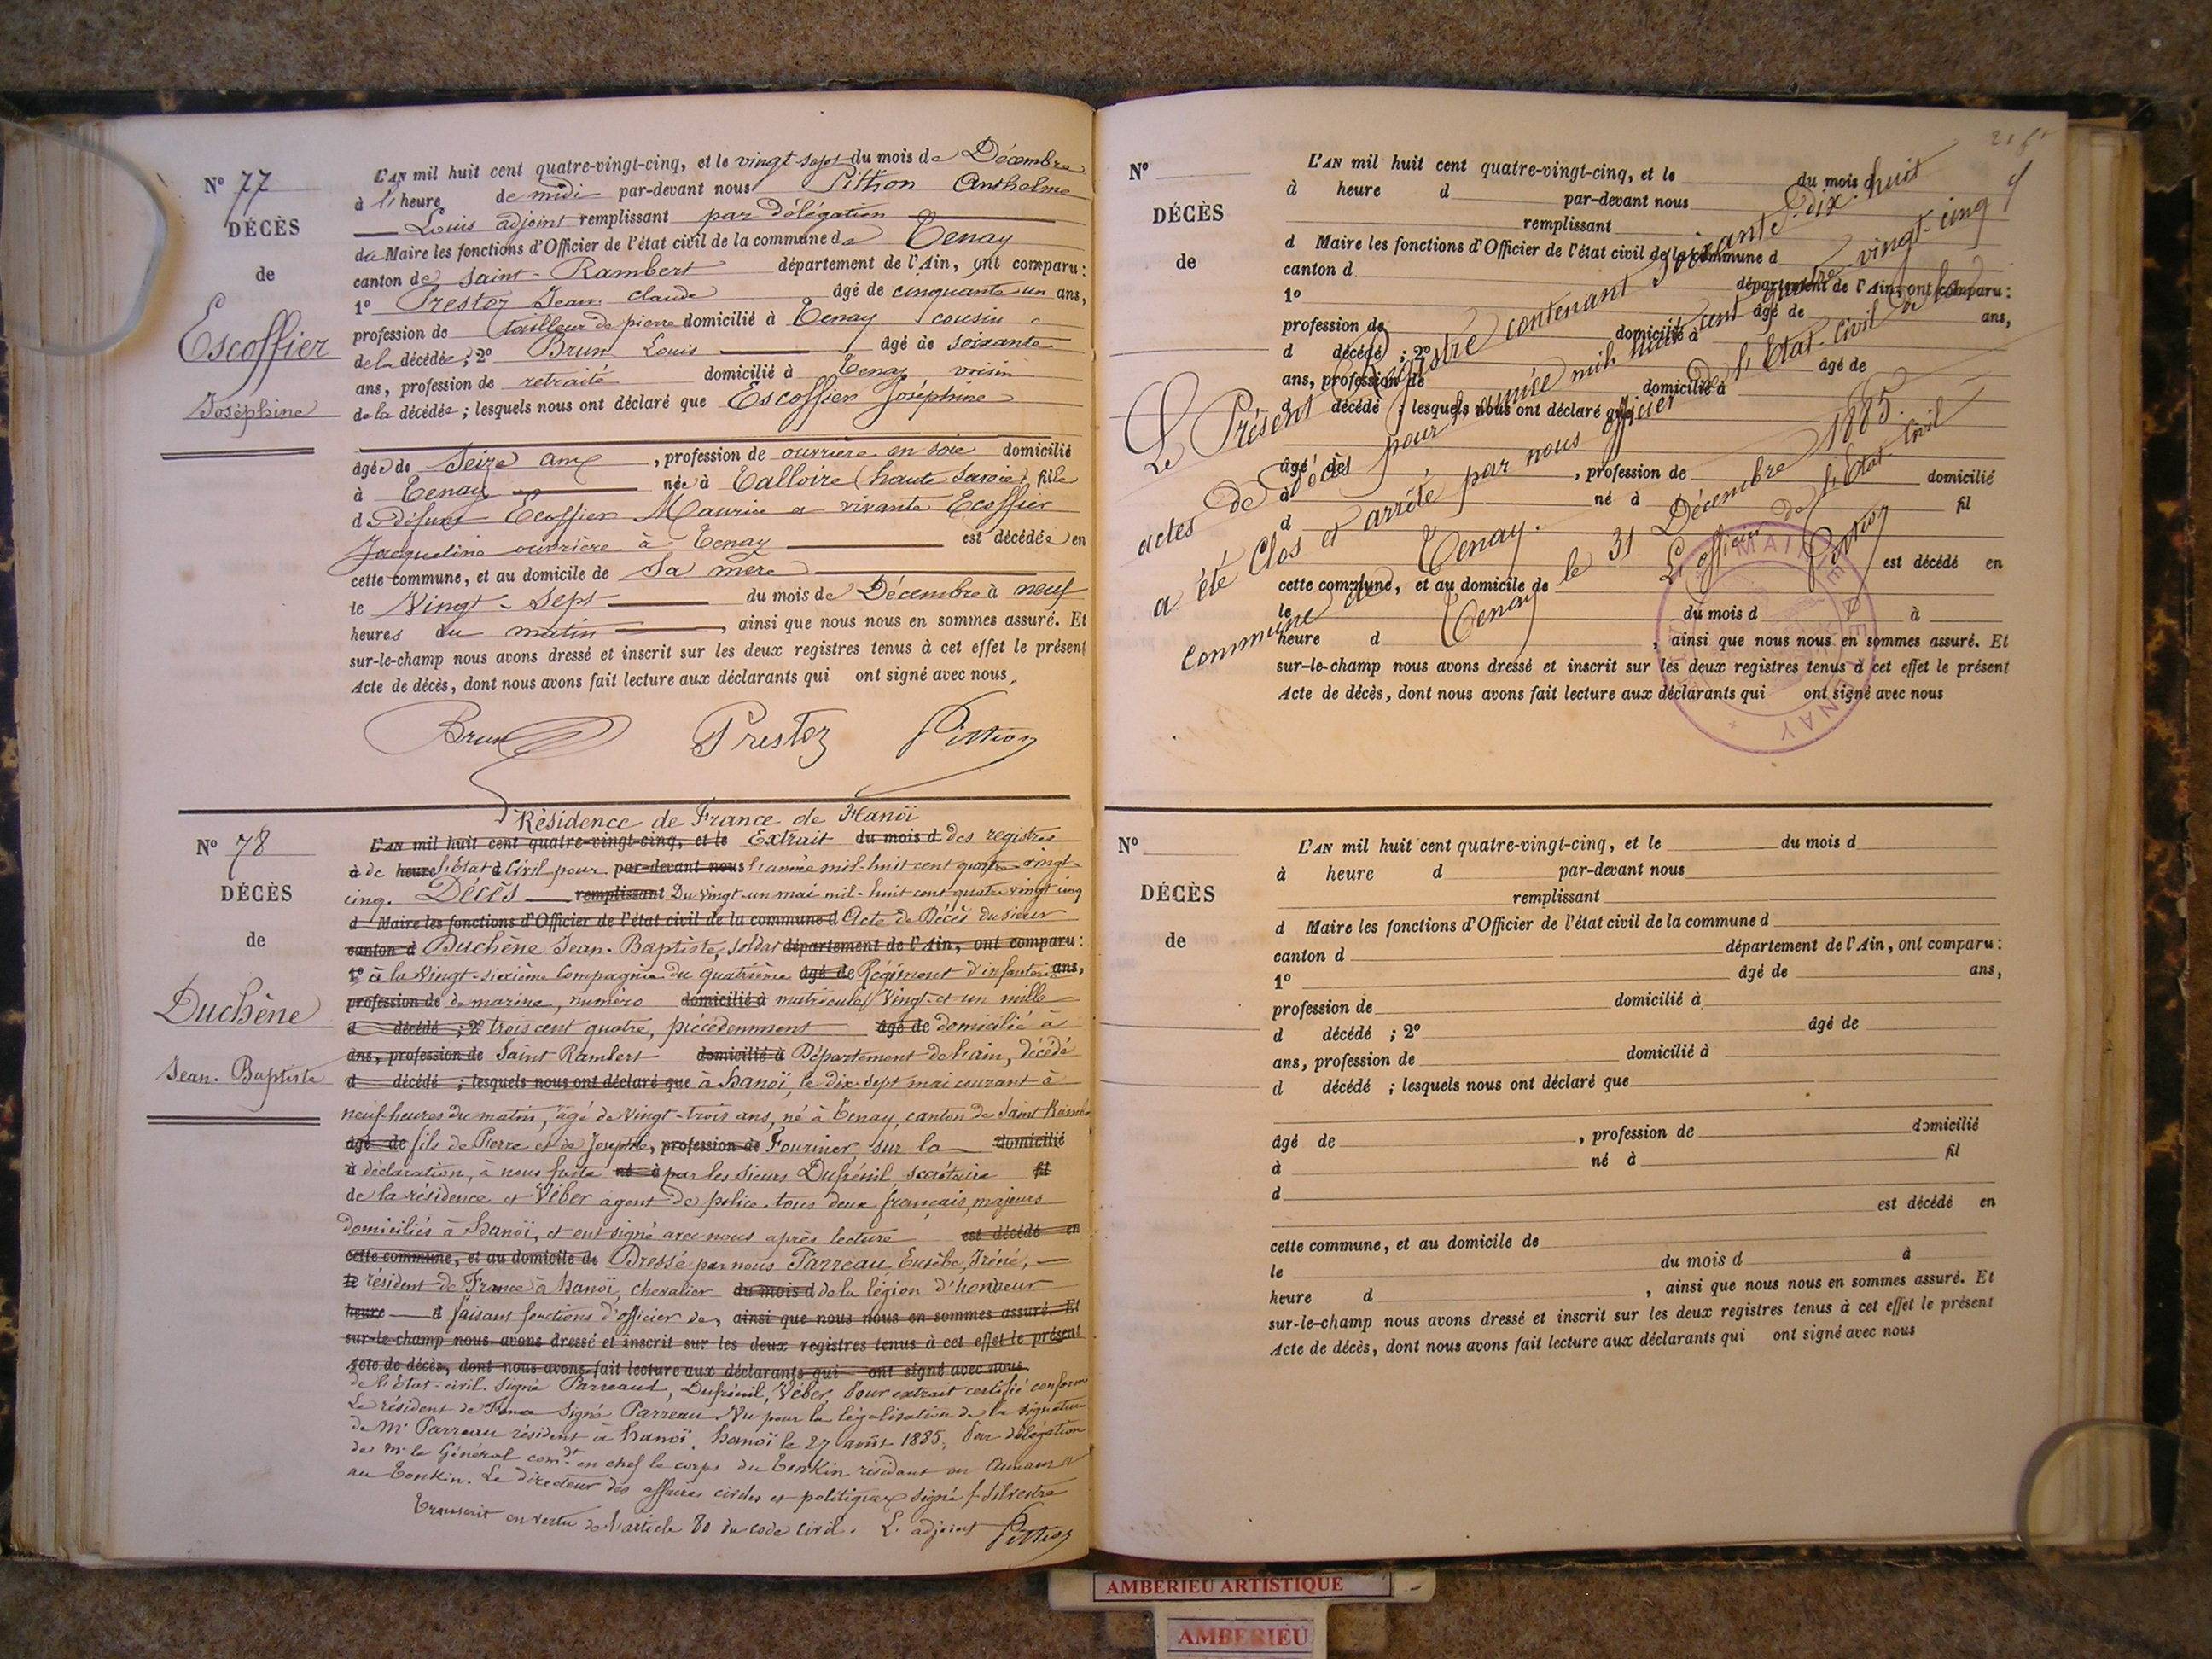 N° 77
DÉCÈS
de
Escoffier
Joséphine
L'AN mil huit cent quatre-vingt-cinq, et le vingt-sept du mois de Décembre
à 1 heure de midi par-devant nous Pittion Anthelme
Louis adjoint remplissant par délégation
du Maire les fonctions d'Officier de l'état civil de la commune de Tenay
canton de Saint-Rambert département de l'Ain, ont comparu :
1° Prestoz Jean Claude âgé de cinquante un ans,
profession de tailleur de pierre domicilié à Tenay cousin
de la décédée ; 2° Brun Louis âgé de soixante
ans, profession de retraité domicilié à Tenay voisin
de la décédée ; lesquels nous ont déclaré que Escoffier Joséphine
âgée de Seize ans, profession de ouvrière en soie domicilié
à Tenay née à Talloire (haute Savoie) fille
de défunt Ecoffier Maurice et vivante Ecoffier
Jacqueline ouvrière à Tenay est décédée en
cette commune, et au domicile de Sa mère
le Vingt-Sept du mois de Décembre à neuf
heures du matin, ainsi que nous nous en sommes assuré. Et
sur-le-champ nous avons dressé et inscrit sur les deux registres tenus à cet effet le présent
Acte de décès, dont nous avons fait lecture aux déclarants qui ont signé avec nous,
Brun Prestoz Pittion
N° 78
DÉCÈS
de
Duchêne
Jean-Baptiste
Résidence de France de Hanoï
L'AN mil huit cent quatre-vingt-cinq, et le Extrait du mois d des registres
à de heure l'Etat d Civil pour par-devant nous l'année mil-huit cent quatre-vingt-
cinq. Décès remplissant Du vingt-un mai mil-huit cent quatre vingt cinq
d Maire les fonctions d'Officier de l'état civil de la commune d Acte de Décès du sieur
canton d Duchêne Jean-Baptiste, soldat département de l'Ain, ont comparu :
1° à la Vingt-sixième Compagnie du quatrième âgé de Régiment d'infanterie ans,
profession de de marine, numéro domicilié à matricule Vingt-et un mille
d décédé ; 2° trois cent quatre, précédemment âgé de domicilié à
ans, profession de Saint Rambert domicilié à Département de l'ain, décédé
d décédé ; lesquels nous ont déclaré que à hanoï, le dix-sept mai courant à
neuf-heures du matin, âgé de vingt-trois ans, né à Tenay, canton de Saint-Rambe
âgé de fils de Pierre et de Josephte, profession de Fournier sur la domicilié
à déclaration, à nous faite né à par les sieurs Dufrénil secrétaire fil
de la résidence et Véber agent de police, tous deux français, majeurs
domiciliés à hanoï, et ont signé avec nous après lecture est décédé en
cette commune, et au domicile de Dressé par nous Parreau, Eusèbe, Iréné,
le résident de France à hanoï, chevalier du mois d de la légion d'honneur
heure d faisant fonctions d'officier de, ainsi que nous nous en sommes assuré. Et
sur-le-champ nous avons dressé et inscrit sur les deux registres tenus à cet effet le présent
Acte de décès, dont nous avons fait lecture aux déclarants qui ont signé avec nous
de l'Etat-civil. Signé Parreaud, Dufrénil, Véber, Pour extrait certifié conforme
Le résident de France Signé Parreau. Vu pour la légalisation de la signature
de Mr Parreau résident à hanoï. hanoï le 27 août 1885, Par délégation
de Mr le Général comdt en chef le corps du Tonkin résidant en Annam et
au Tonkin. Le directeur des affaires civiles et politiques signé f Silvestre
Transcrit en vertu de l'article 80 du code civil. L'adjoint Pittion
N°
DÉCÈS
de
L'AN mil huit cent quatre-vingt-cinq, et le du mois d
à heure d par-devant nous
remplissant
d Maire les fonctions d'Officier de l'état civil de la commune d
canton d département de l'Ain, ont comparu :
1° âgé de ans,
profession de domicilié à
d décédé ; 2° âgé de
ans, profession de domicilié à
d décédé ; lesquels nous ont déclaré que
âgé de , profession de domicilié
à né à fil
d
est décédé en
cette commune, et au domicile de
le du mois d à
heure d , ainsi que nous nous en sommes assuré. Et
sur-le-champ nous avons dressé et inscrit sur les deux registres tenus à cet effet le présent
Acte de décès, dont nous avons fait lecture aux déclarants qui ont signé avec nous
Le Présent Registre contenant Soixante-dix-huit
actes de Décès pour l'année mil huit cent quatre vingt-cinq
a été Clos et arrêté par nous officier de l'Etat-Civil de la
commune de Tenay.
Tenay le 31 Décembre 1885.
L'officier de l'Etat-Civil
Pittion
MAIRIE DE TENAY
N°
DÉCÈS
de
L'AN mil huit cent quatre-vingt-cinq, et le du mois d
à heure d par-devant nous
remplissant
d Maire les fonctions d'Officier de l'état civil de la commune d
canton d département de l'Ain, ont comparu :
1° âgé de ans,
profession de domicilié à
d décédé ; 2° âgé de
ans, profession de domicilié à
d décédé ; lesquels nous ont déclaré que
âgé de , profession de domicilié
à né à fil
d
est décédé en
cette commune, et au domicile de
le du mois d à
heure d , ainsi que nous nous en sommes assuré. Et
sur-le-champ nous avons dressé et inscrit sur les deux registres tenus à cet effet le présent
Acte de décès, dont nous avons fait lecture aux déclarants qui ont signé avec nous
AMBERIEU ARTISTIQUE
AMBERIEU